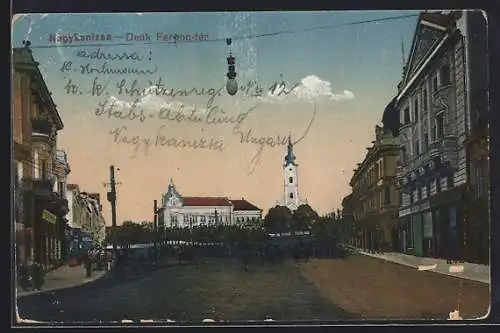 Nagykanizsa – Deák Ferenc-tér
adressa:
K. k. Schützenreg. No 12
Stabs-Abteilung
Nagykanizsa Ungarn